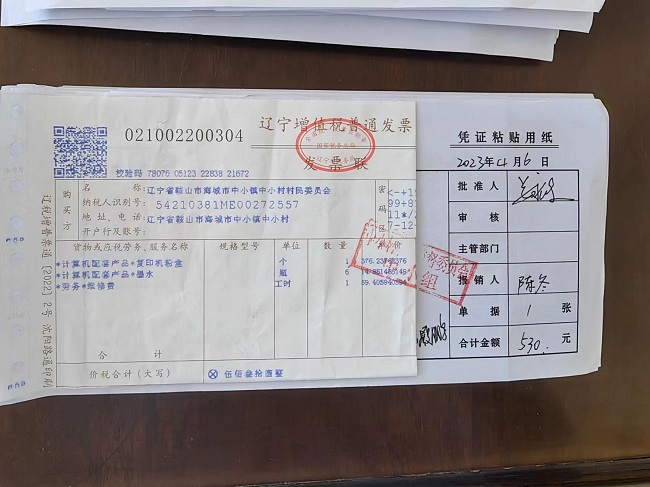 021002200304
辽宁增值税普通发票
发票联
校验码 78076 05123 22838 21672
购买方
名称:辽宁省鞍山市海城市中小镇中小村村民委员会
纳税人识别号:54210381ME00272557
地址、电话:辽宁省鞍山市海城市中小镇中小村
开户行及账号:
密码
货物或应税劳务、服务名称 规格型号 单位 数量 单价
*计算机配套产品*复印机粉盒 个 1
*计算机配套产品*墨水 瓶 6
*劳务*维修费 工时 1
合计
价税合计(大写) ⊗ 伍佰叁拾圆整
辽税增普票通[2022]2号沈阳路通印刷
凭证粘贴用纸
2023年4月6日
批准人
审核
主管部门
报销人 陈冬
单据 1 张
合计金额 530. 元